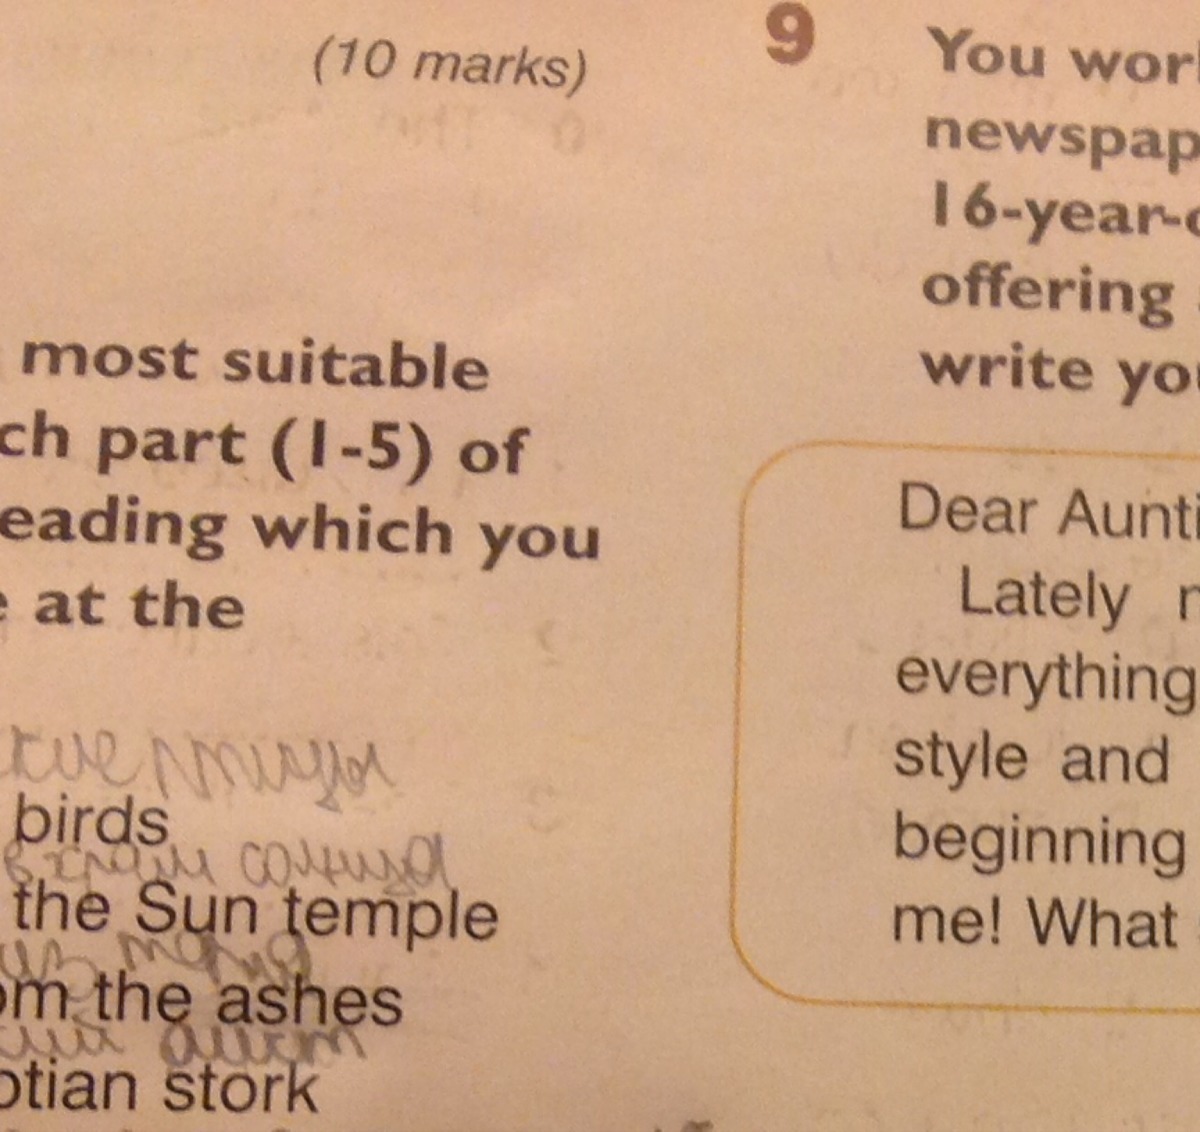 (10 marks)
most suitable
ch part (1-5) of
eading which you
e at the
птицы
birds
в храм солнца
the Sun temple
из
om the ashes
аист
otian stork
9
You wor
newspap
16-year-o
offering
write you
Dear Aunti
Lately
everything
style and
beginning
me! What